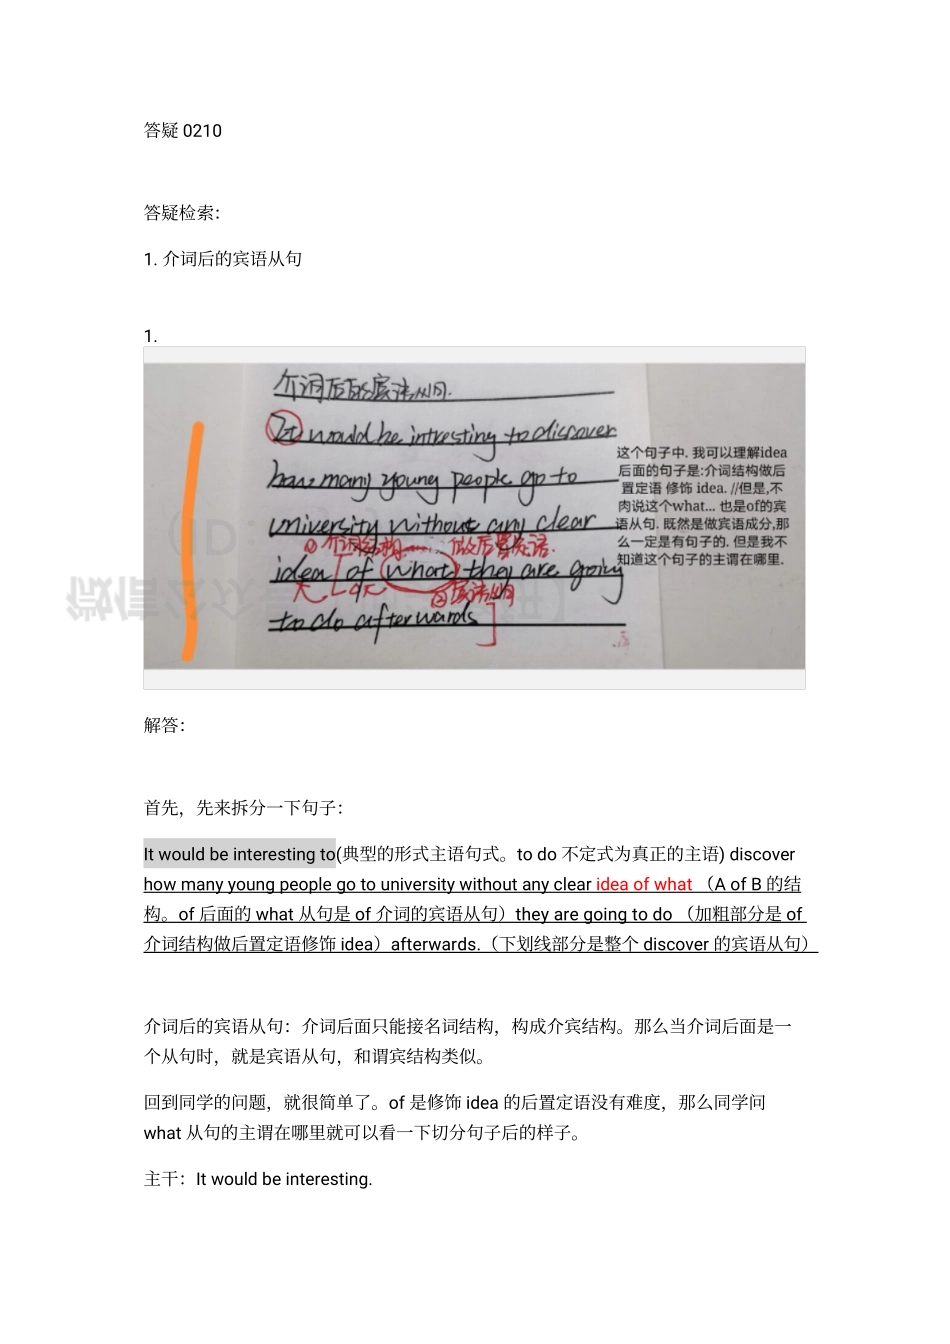 答疑 0210
答疑检索：
1. 介词后的宾语从句
1.
介词后的宾语从句.
It would be intresting to discover
how many young people go to
university without any clear
① 介词结构…… 做后置定语.
idea [of what they are going
② 宾语从句
to do afterwards]
这个句子中. 我可以理解idea
后面的句子是:介词结构做后
置定语 修饰 idea. //但是,不
肉说这个what... 也是of的宾
语从句. 既然是做宾语成分,那
么一定是有句子的. 但是我不
知道这个句子的主谓在哪里.
解答：
首先，先来拆分一下句子：
It would be interesting to(典型的形式主语句式。to do 不定式为真正的主语) discover
how many young people go to university without any clear idea of what （A of B 的结
构。of 后面的 what 从句是 of 介词的宾语从句）they are going to do （加粗部分是 of
介词结构做后置定语修饰 idea）afterwards.（下划线部分是整个 discover 的宾语从句）
介词后的宾语从句：介词后面只能接名词结构，构成介宾结构。那么当介词后面是一
个从句时，就是宾语从句，和谓宾结构类似。
回到同学的问题，就很简单了。of 是修饰 idea 的后置定语没有难度，那么同学问
what 从句的主谓在哪里就可以看一下切分句子后的样子。
主干：It would be interesting.